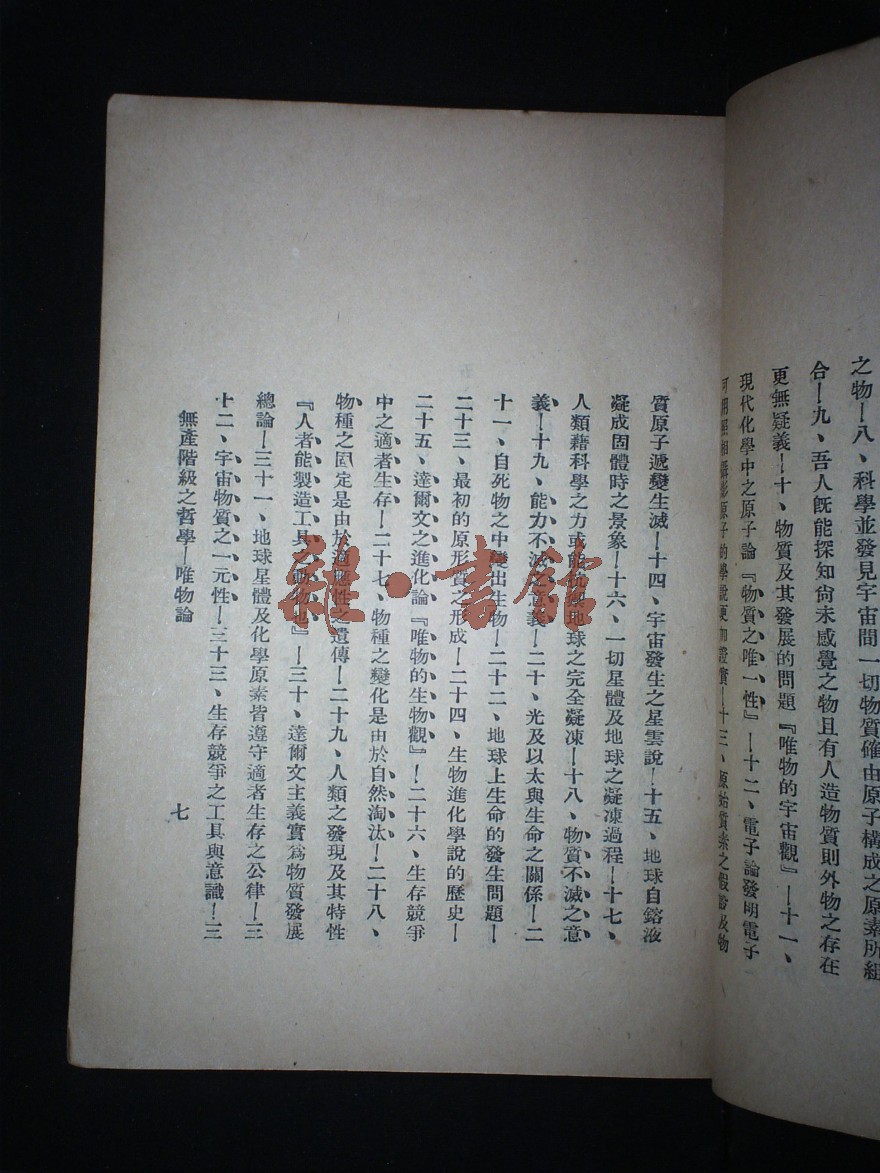 之物—八、科學並發見宇宙間一切物質確由原子構成之原素所組
合—九、吾人旣能探知尙未感覺之物且有人造物質則外物之存在
更無疑義—十、物質及其發展的問題『唯物的宇宙觀』—十一、
現代化學中之原子論『物質之唯一性』—十二、電子論發明電子
可用照相攝影原子的學說更加證實—十三、原始質素之假說及物
質原子遞變生滅—十四、宇宙發生之星雲說—十五、地球自鎔液
凝成固體時之景象—十六、一切星體及地球之凝凍過程—十七、
人類藉科學之力或能抗禦地球之完全凝凍—十八、物質不滅之意
義—十九、能力不滅之意義—二十、光及以太與生命之關係—二
十一、自死物之中變出生物—二十二、地球上生命的發生問題—
二十三、最初的原形質之形成—二十四、生物進化學說的歷史—
二十五、達爾文之進化論『唯物的生物觀』—二十六、生存競爭
中之適者生存—二十七、物種之變化是由於自然淘汰—二十八、
物種之固定是由於適應性之遺傳—二十九、人類之發現及其特性
『人者能製造工具之動物也』—三十、達爾文主義實爲物質發展
總論—三十一、地球星體及化學原素皆遵守適者生存之公律—三
十二、宇宙物質之一元性—三十三、生存競爭之工具與意識—三
無產階級之哲學—唯物論
七
雜·書館